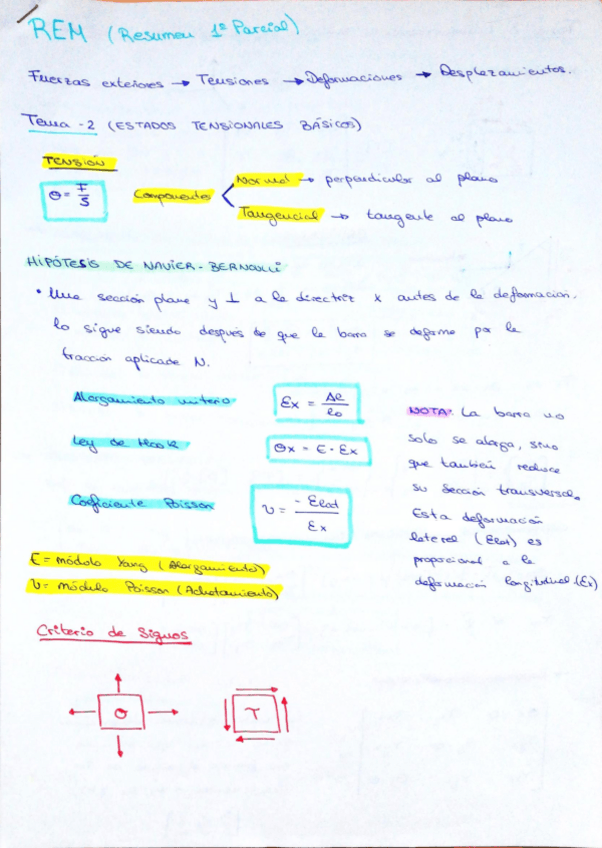 REM (Resumen 1º Parcial)
Fuerzas exteriores → Tensiones → Deformaciones → Desplazamientos.
Tema - 2 (ESTADOS TENSIONALES BÁSICOS)
TENSIÓN
σ = F/S
Componentes
Normal → perpendicular al plano
Tangencial → tangente al plano
HIPÓTESIS DE NAVIER-BERNOULLI
• Una sección plana y ⊥ a la directriz x antes de la deformación,
lo sigue siendo después de que la barra se deforme por la
tracción aplicada N.
Alargamiento unitario
Ex = Δl/l0
Ley de Hook
σx = E · Ex
Coeficiente Poisson
ν = - Elat/Ex
NOTA: La barra no
solo se alarga, sino
que también reduce
su sección transversal.
Esta deformación
lateral (Elat) es
proporcional a la
deformación longitudinal (Ex)
E = módulo Yang (Alargamiento)
ν = módulo Poisson (Achatamiento)
Criterio de Signos
σ
T